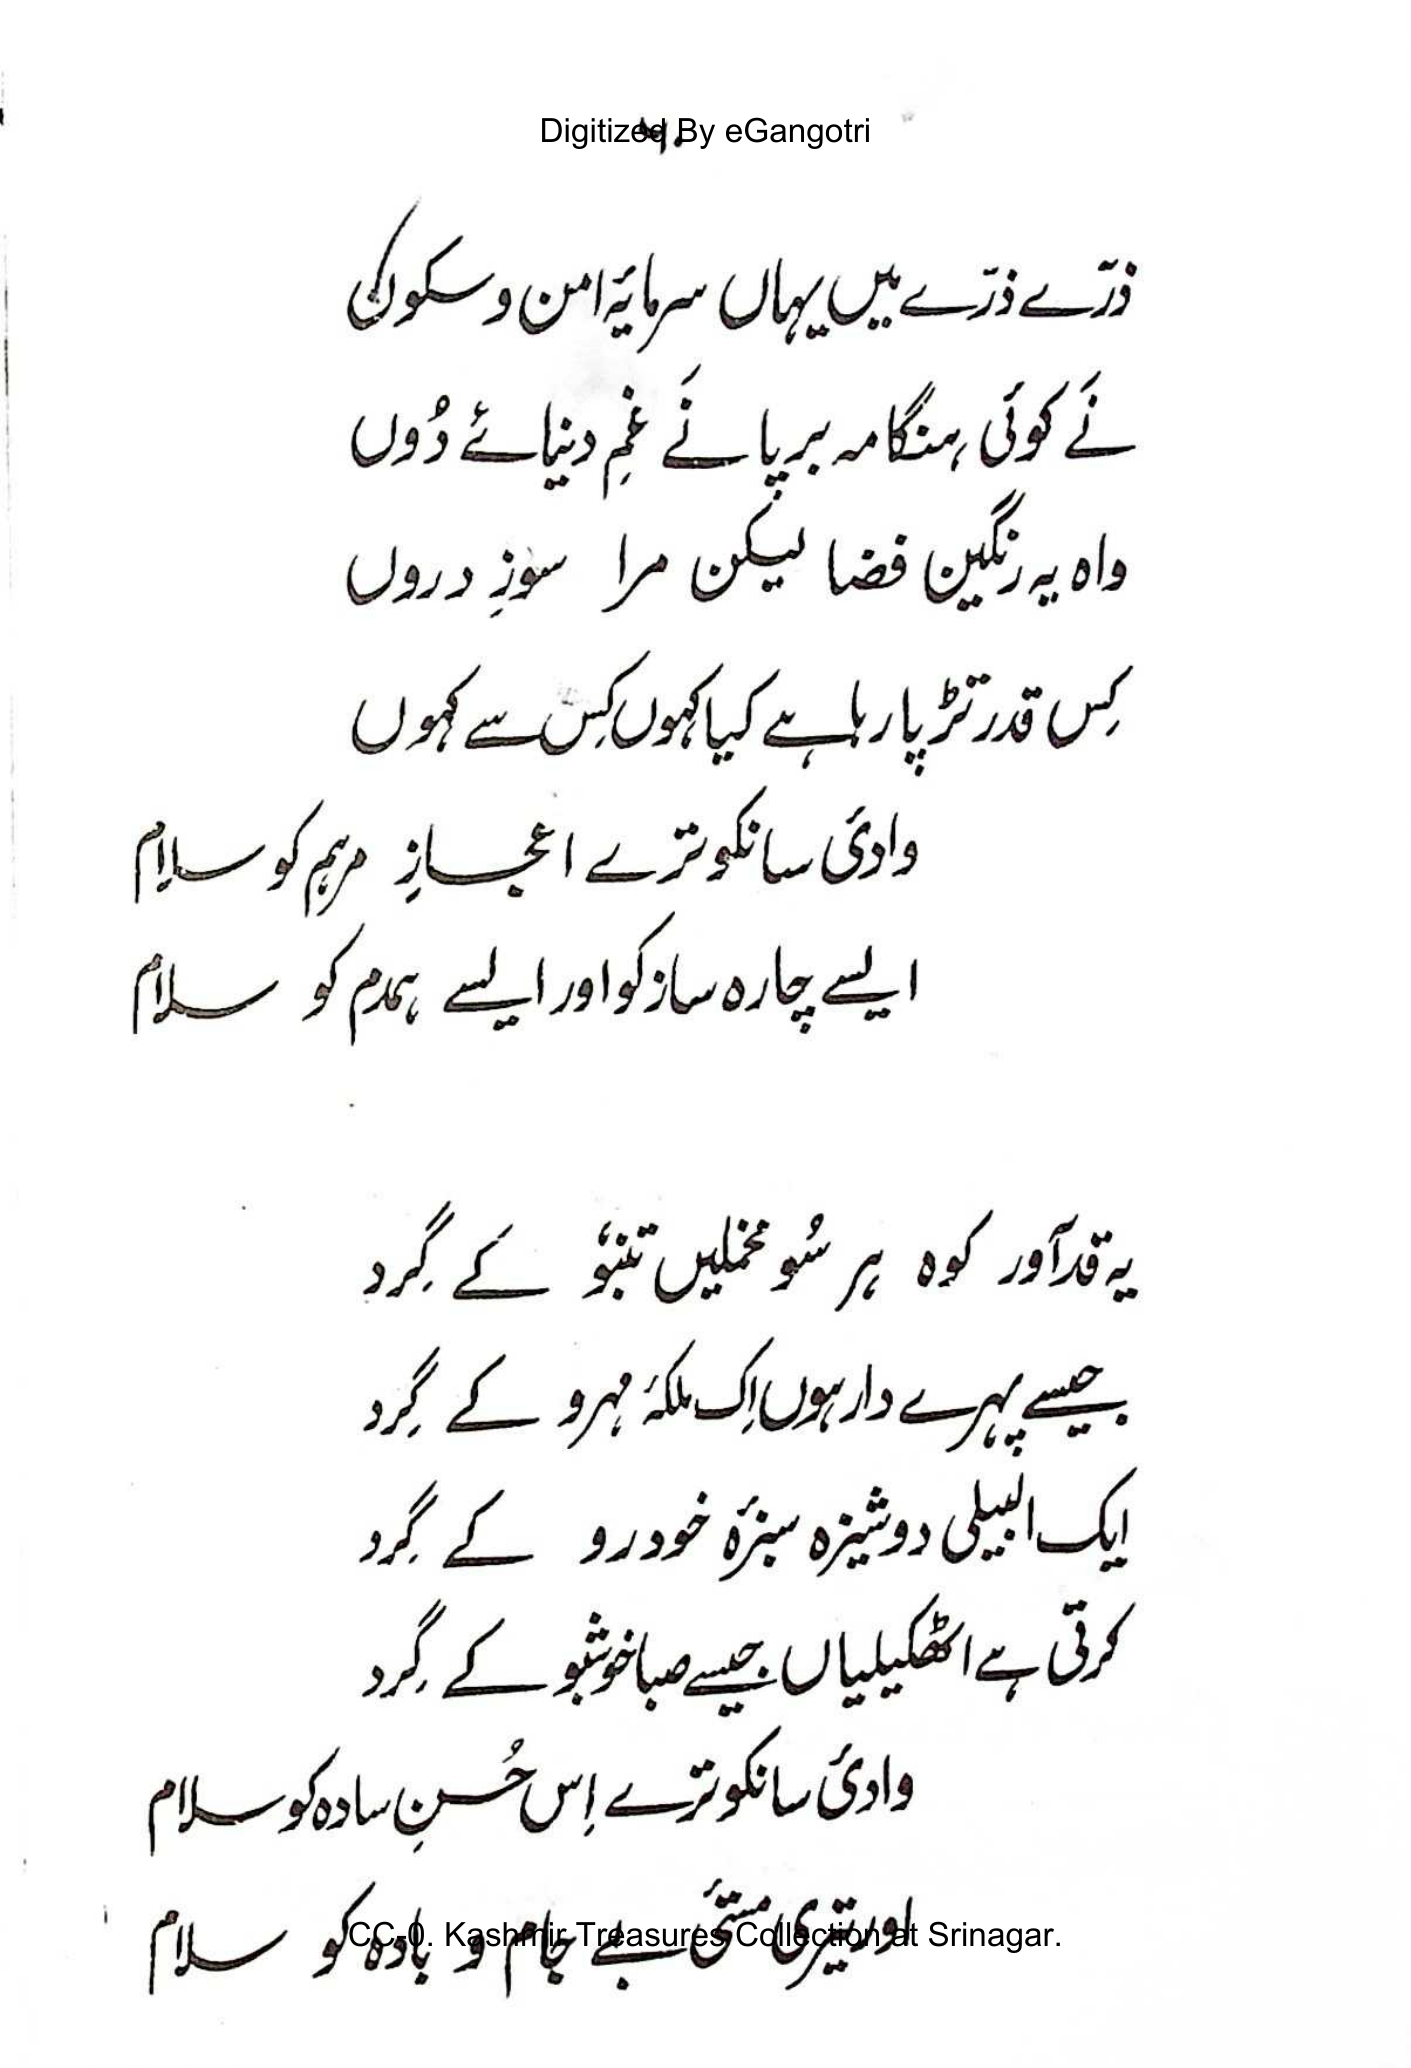 Digitized By eGangotri
ذرّے ذرّے میں یہاں سرمایۂ امن و سکوں کی
نَے کوئی ہنگامہ برپا نَے غمِ دنیائے دُوں
واہ یہ رنگین فضا لیکن مرا سوزِ دروں
کِس قدر تڑپا رہا ہے کیا کہوں کِس سے کہوں
وادیٔ سانکو ترے اعجازِ مرہم کو سلام
ایسے چارہ ساز کو اور ایسے ہمدم کو سلام
یہ قدآور کوہ ہر سُو مخملیں تنبوٗ کے گِرد
جیسے پہرے دار ہوں اِک ملکۂ مہرو کے گِرد
ایک البیلی دوشیزہ سبزۂ خودرو کے گِرد
کرتی ہے اٹھکیلیاں جیسے صبا خوشبو کے گِرد
وادیٔ سانکو ترے اِس حُسنِ سادہ کو سلام
اور تیری مستیٔ بے جام و بادہ کو سلام
CC-0. Kashmir Treasures Collection at Srinagar.